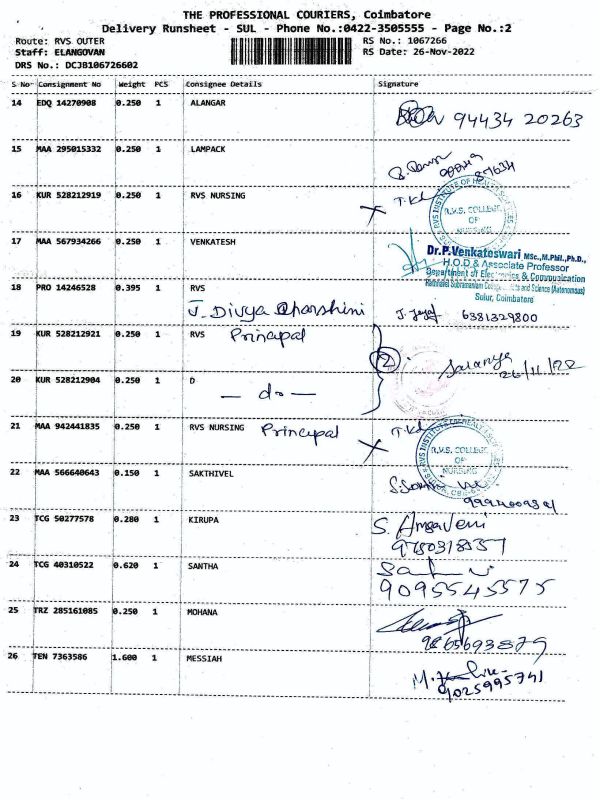 THE PROFESSIONAL COURIERS, Coimbatore
Delivery Runsheet - SUL - Phone No.:0422-3505555 - Page No.:2
Route: RVS OUTER RS No.: 1067266
Staff: ELANGOVAN RS Date: 26-Nov-2022
DRS No.: DCJB106726602
S No Consignment No Weight PCS Consignee Details Signature
14 EDQ 14270908 0.250 1 ALANGAR 94434 20263
15 MAA 295015332 0.250 1 LAMPACK
16 KUR 528212919 0.250 1 RVS NURSING
R.V.S. COLLEGE
OF
NURSING
17 MAA 567934266 0.250 1 VENKATESH
Dr.P.Venkateswari MSc.,M.Phil.,Ph.D.,
H.O.D & Associate Professor
Department of Electronics & Communication
Rathnavel Subramaniam College of Arts and Science (Autonomous)
Sulur, Coimbatore
18 PRO 14246528 0.395 1 RVS
J. Divya Dharshini 6381329800
19 KUR 528212921 0.250 1 RVS Principal
2 Saranya
26/11/22
20 KUR 528212904 0.250 1 D
— do —
21 MAA 942441835 0.250 1 RVS NURSING Principal
R.V.S. COLLEGE
OF
NURSING
22 MAA 566640643 0.150 1 SAKTHIVEL
23 TCG 50277578 0.280 1 KIRUPA S. Amsaveni
24 TCG 40310522 0.620 1 SANTHA
9095545575
25 TRZ 285161085 0.250 1 MOHANA
26 TEN 7363586 1.600 1 MESSIAH
9025995741